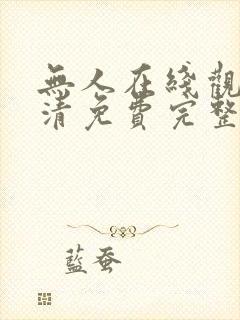 無人在綫觀
清免費完整
藍蚕